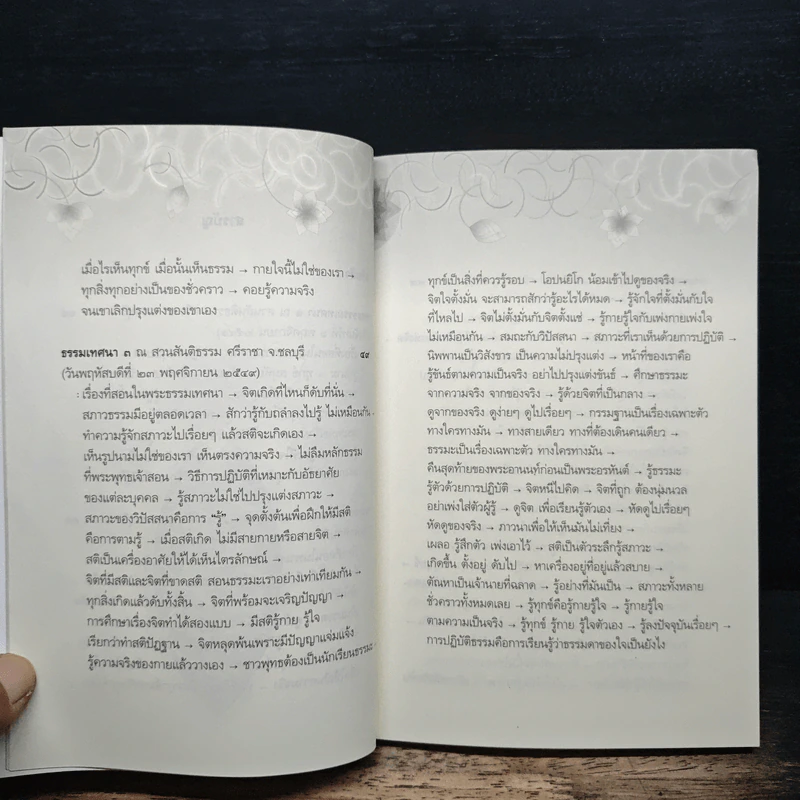 เมื่อไรเห็นทุกข์ เมื่อนั้นเห็นธรรม → กายใจนี้ไม่ใช่ของเรา →
ทุกสิ่งทุกอย่างเป็นของชั่วคราว → คอยรู้ความจริง
จนเขาเลิกปรุงแต่งของเขาเอง
ธรรมเทศนา ๓ ณ สวนสันติธรรม ศรีราชา จ.ชลบุรี ๔๙
(วันพฤหัสบดีที่ ๒๓ พฤศจิกายน ๒๕๔๙)
เรื่องที่สอนในพระธรรมเทศนา → จิตเกิดที่ไหนก็ดับที่นั่น →
สภาวธรรมมีอยู่ตลอดเวลา → สักว่ารู้กับถลำลงไปรู้ ไม่เหมือนกัน →
ทำความรู้จักสภาวะไปเรื่อยๆ แล้วสติจะเกิดเอง →
เห็นรูปนามไม่ใช่ของเรา เห็นตรงความจริง → ไม่ลืมหลักธรรม
ที่พระพุทธเจ้าสอน → วิธีการปฏิบัติที่เหมาะกับอัธยาศัย
ของแต่ละบุคคล → รู้สภาวะไม่ใช่ไปปรุงแต่งสภาวะ →
สภาวะของวิปัสสนาคือการ "รู้" → จุดตั้งต้นเพื่อฝึกให้มีสติ
คือการตามรู้ → เมื่อสติเกิด ไม่มีสายกายหรือสายจิต →
สติเป็นเครื่องอาศัยให้ได้เห็นไตรลักษณ์ →
จิตที่มีสติและจิตที่ขาดสติ สอนธรรมะเราอย่างเท่าเทียมกัน →
ทุกสิ่งเกิดแล้วดับทั้งสิ้น → จิตที่พร้อมจะเจริญปัญญา →
การศึกษาเรื่องจิตทำได้สองแบบ → มีสติรู้กาย รู้ใจ
เรียกว่าทำสติปัฏฐาน → จิตหลุดพ้นเพราะมีปัญญาแจ่มแจ้ง
รู้ความจริงของกายแล้ววางเอง → ชาวพุทธต้องเป็นนักเรียนธรรมะ
ทุกข์เป็นสิ่งที่ควรรู้รอบ → โอปนยิโก น้อมเข้าไปดูของจริง →
จิตใจตั้งมั่น จะสามารถสักว่ารู้อะไรได้หมด → รู้จักใจที่ตั้งมั่นกับใจ
ที่ไหลไป → จิตไม่ตั้งมั่นกับจิตตั้งแช่ → รู้กายรู้ใจกับเพ่งกายเพ่งใจ
ไม่เหมือนกัน → สมถะกับวิปัสสนา → สภาวะที่เราเห็นด้วยการปฏิบัติ →
นิพพานเป็นวิสังขาร เป็นความไม่ปรุงแต่ง → หน้าที่ของเราคือ
รู้ขันธ์ตามความเป็นจริง อย่าไปปรุงแต่งขันธ์ → ศึกษาธรรมะ
จากความจริง จากของจริง → รู้ด้วยจิตที่เป็นกลาง →
ดูจากของจริง ดูง่ายๆ ดูไปเรื่อยๆ → กรรมฐานเป็นเรื่องเฉพาะตัว
ทางใครทางมัน → ทางสายเดียว ทางที่ต้องเดินคนเดียว →
ธรรมะเป็นเรื่องเฉพาะตัว ทางใครทางมัน →
คืนสุดท้ายของพระอานนท์ก่อนเป็นพระอรหันต์ → รู้ธรรมะ
รู้ตัวด้วยการปฏิบัติ → จิตหนีไปคิด → จิตที่ถูก ต้องนุ่มนวล
อย่าเพ่งใส่ตัวผู้รู้ → ดูจิต เพื่อเรียนรู้ตัวเอง → หัดดูไปเรื่อยๆ
หัดดูของจริง → ภาวนาเพื่อให้เห็นมันไม่เที่ยง →
เผลอ รู้สึกตัว เพ่งเอาไว้ → สติเป็นตัวระลึกรู้สภาวะ →
เกิดขึ้น ตั้งอยู่ ดับไป → หาเครื่องอยู่ที่อยู่แล้วสบาย →
ตัณหาเป็นเจ้านายที่ฉลาด → รู้อย่างที่มันเป็น → สภาวะทั้งหลาย
ชั่วคราวทั้งหมดเลย → รู้ทุกข์คือรู้กายรู้ใจ → รู้กายรู้ใจ
ตามความเป็นจริง → รู้ทุกข์ รู้กาย รู้ใจตัวเอง → รู้ลงปัจจุบันเรื่อยๆ →
การปฏิบัติธรรมคือการเรียนรู้ว่าธรรมดาของใจเป็นยังไง